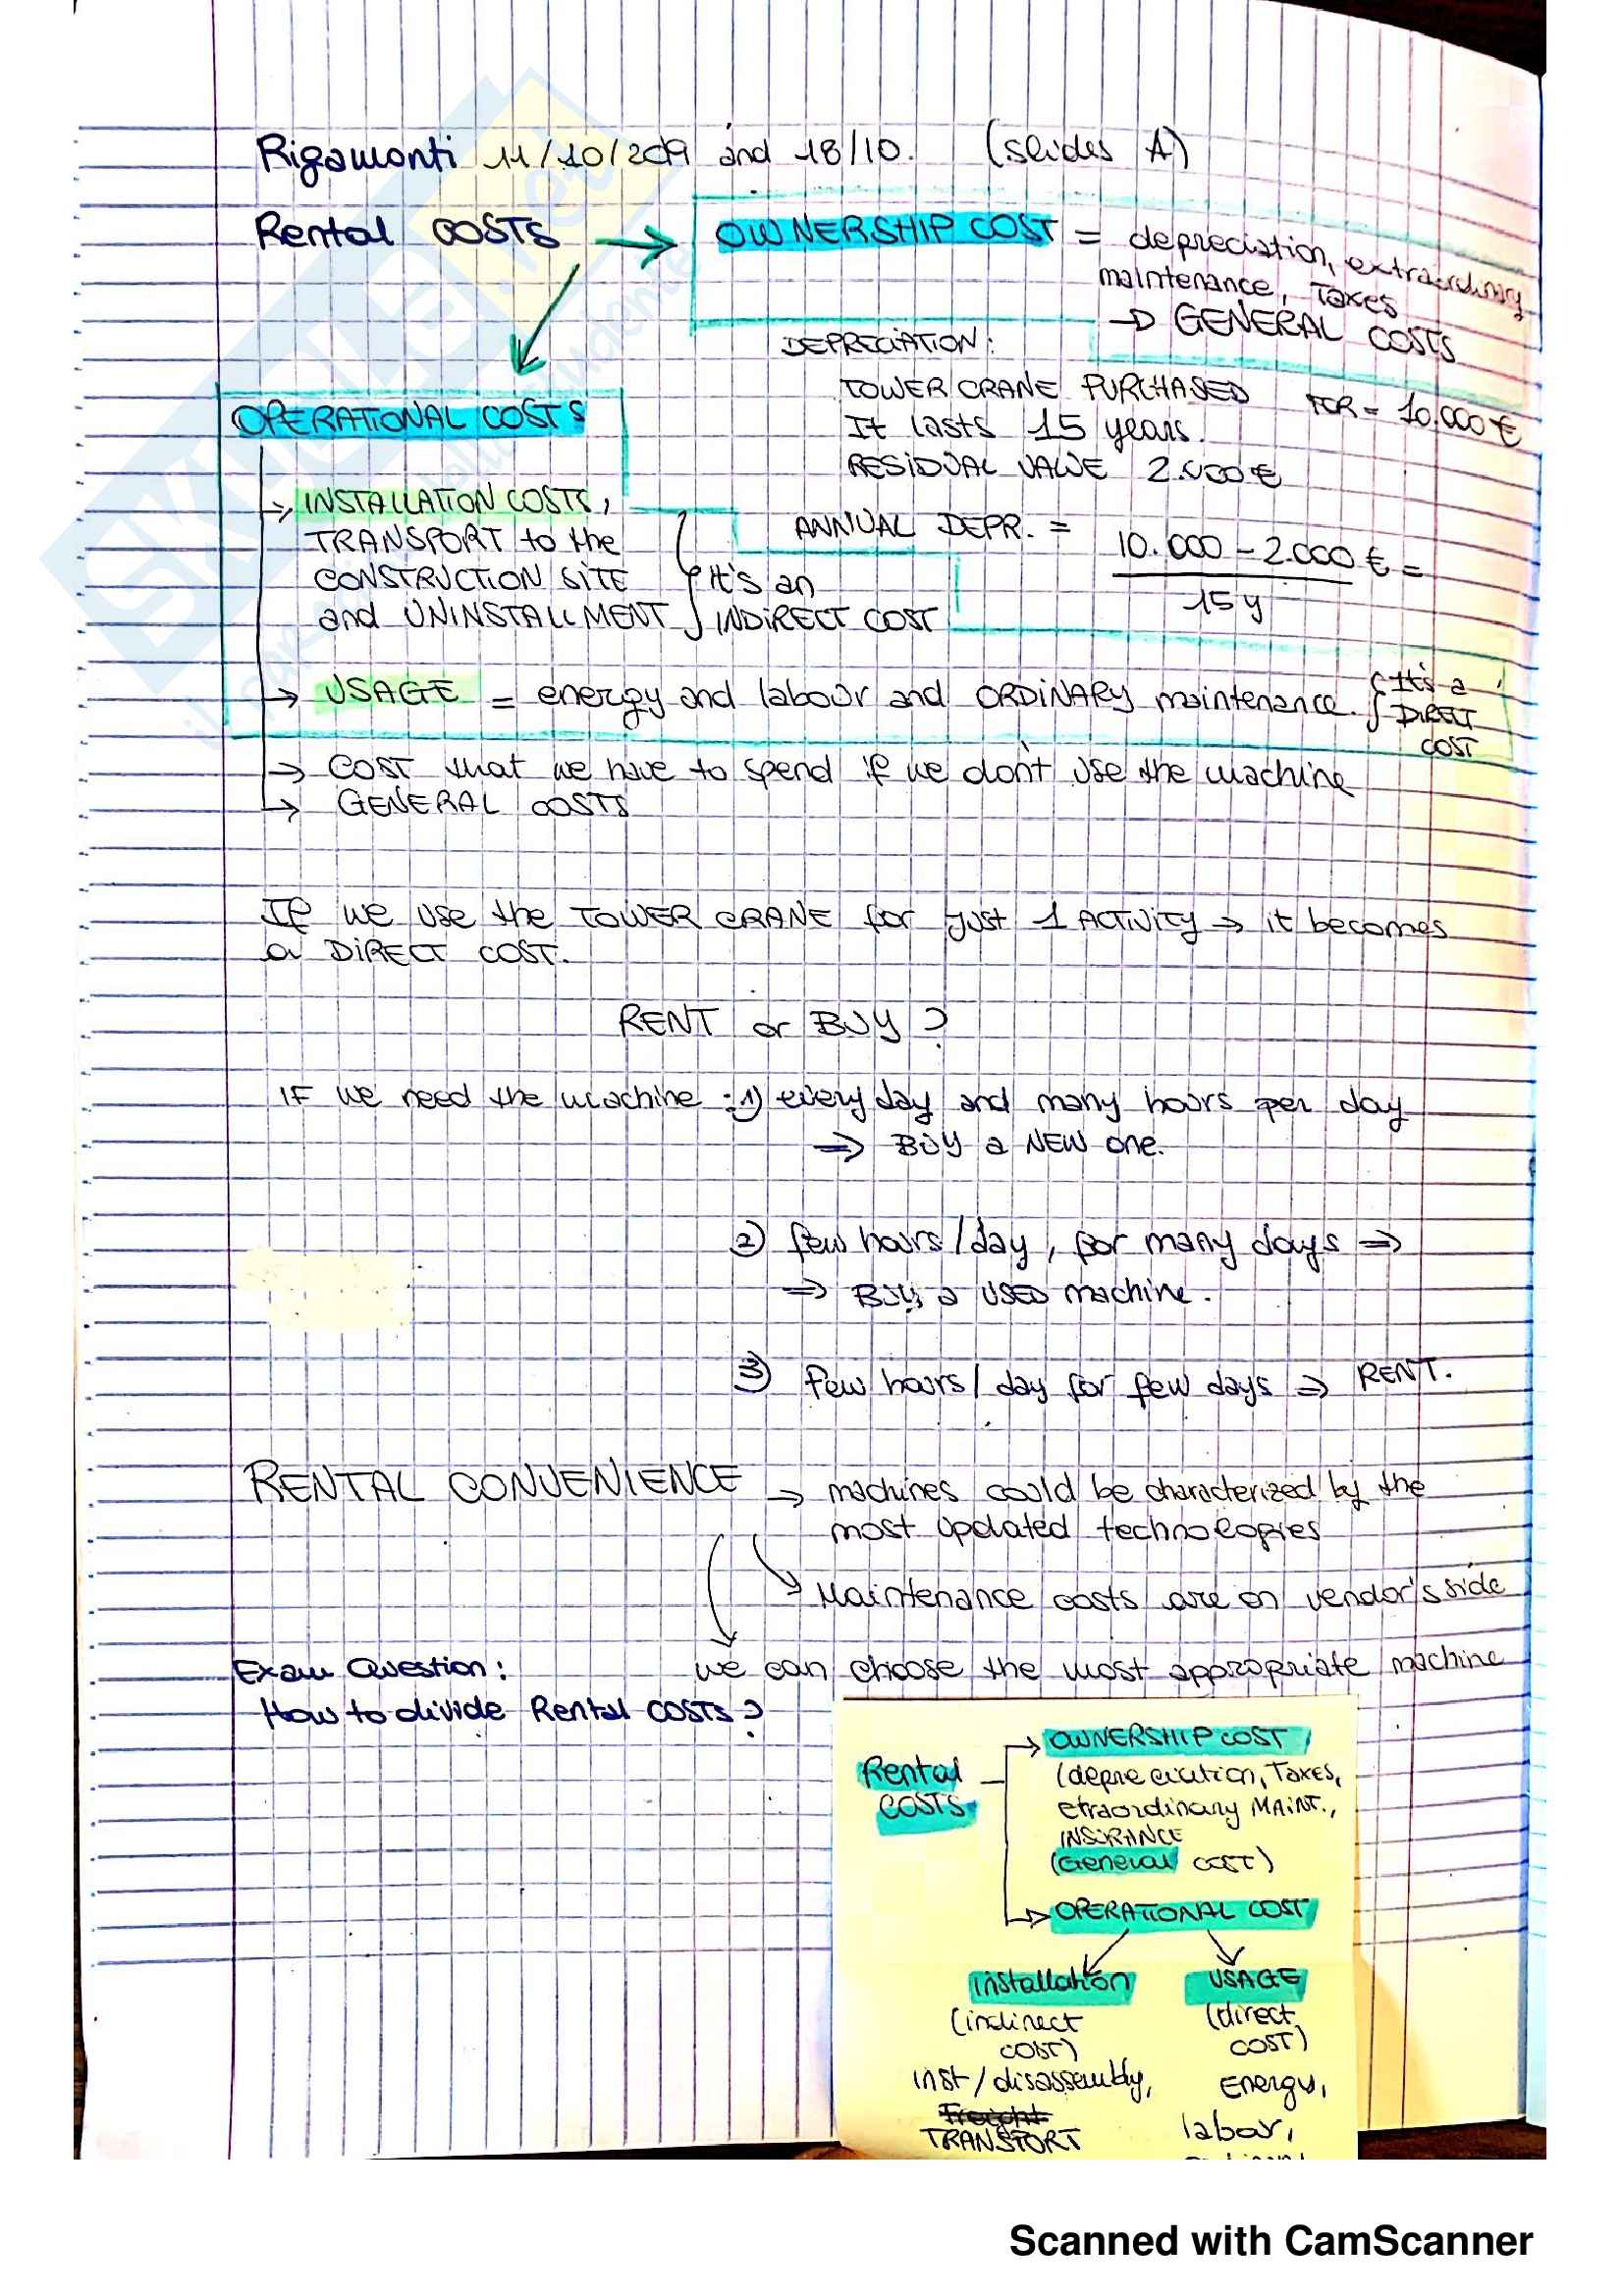 Rigamonti 11/10/2019 and 18/10. (slides A)
Rental COSTS → OWNERSHIP COST = depreciation, extraordinary
maintenance, Taxes
→ GENERAL COSTS
DEPRECIATION:
TOWER CRANE PURCHASED FOR = 10.000 €
It lasts 15 years.
RESIDUAL VALUE 2.000 €
ANNUAL DEPR. = 10.000 - 2.000 € =
15 y
OPERATIONAL COSTS
→ INSTALLATION COSTS,
TRANSPORT to the
CONSTRUCTION SITE
and UNINSTALLMENT
it's an
INDIRECT COST
→ USAGE = energy and labour and ORDINARY maintenance.
It's a
DIRECT
COST
→ COST that we have to spend if we don't use the machine
→ GENERAL COSTS
If we use the TOWER CRANE for just 1 ACTIVITY → it becomes
a DIRECT COST.
RENT or BUY?
IF we need the machine : 1) every day and many hours per day
⇒ BUY a NEW one.
2) few hours/day, for many days ⇒
⇒ BUY a USED machine.
3) few hours/day for few days ⇒ RENT.
RENTAL CONVENIENCE → machines could be characterized by the
most updated technologies
Maintenance costs are on vendor's side
we can choose the most appropriate machine
Exam Question:
How to divide Rental COSTS?
Rental
COSTS
OWNERSHIP COST
(depreciation, Taxes,
etraordinary MAINT.,
INSURANCE
(General COST)
OPERATIONAL COST
installation
(indirect
COST)
inst/disassembly,
Freight
TRANSPORT
USAGE
(direct
COST)
Energy,
labor,
Scanned with CamScanner